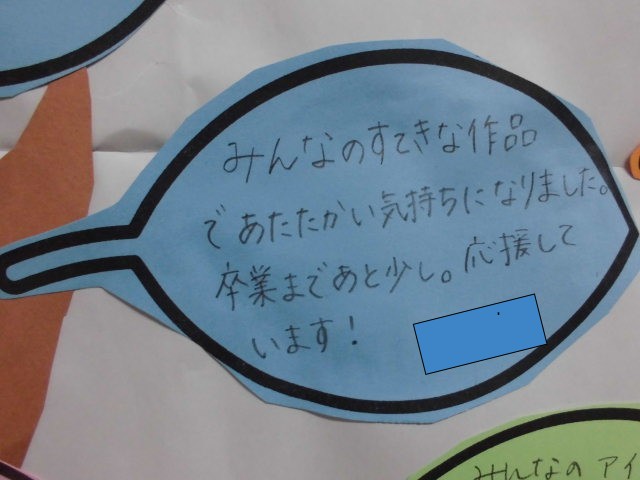 みんなのすてきな作品
であたたかい気持ちになりました。
卒業まであと少し。応援して
います!
みんなのアイ